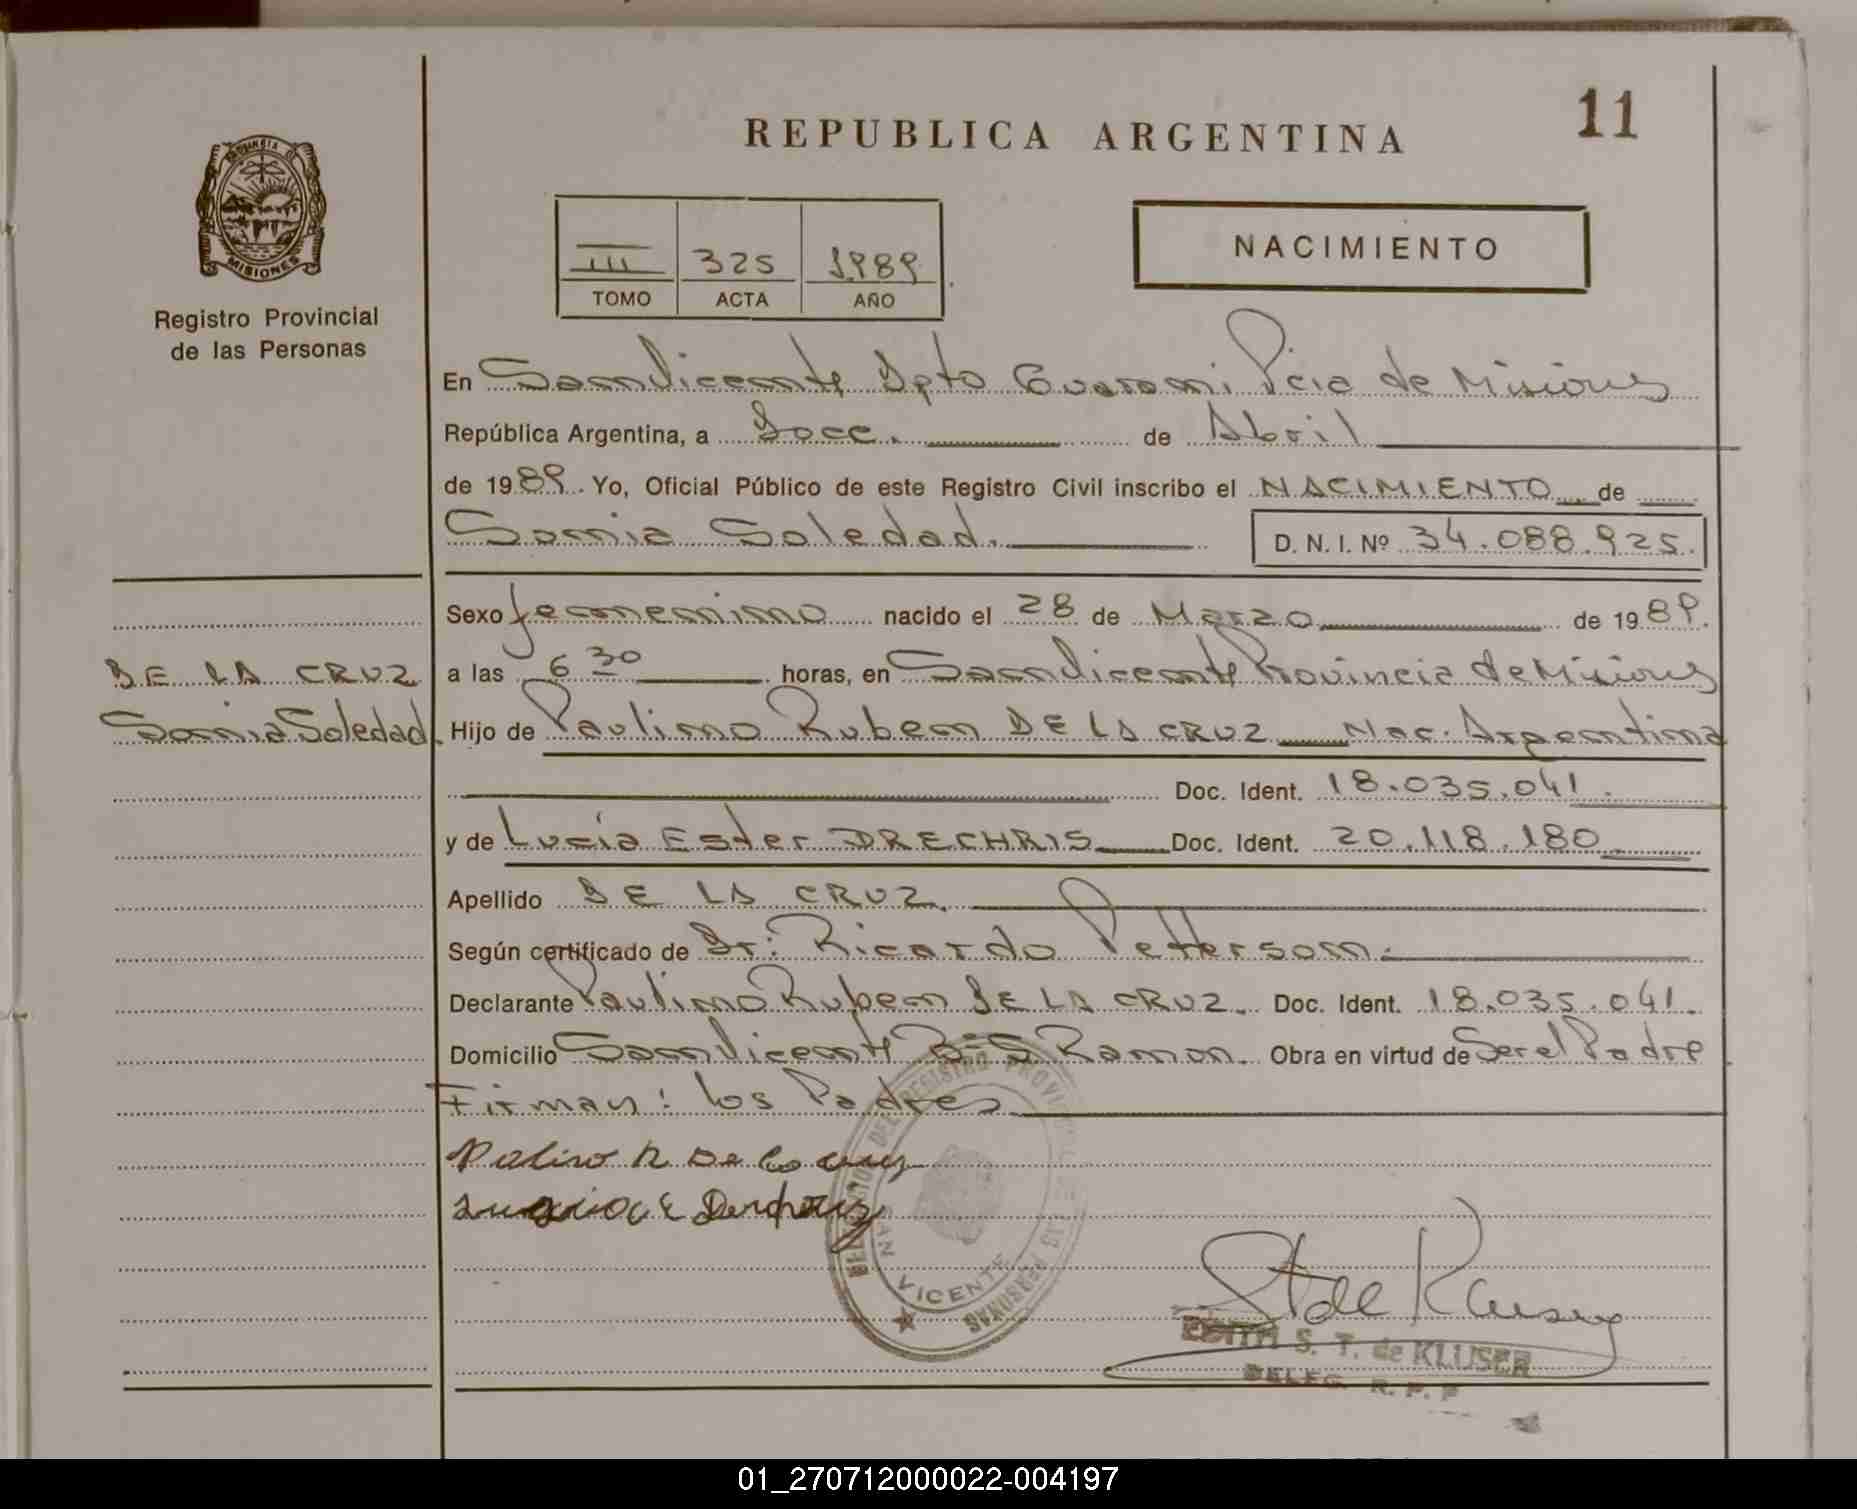 11
REPUBLICA ARGENTINA
PROVINCIA DE
MISIONES
Registro Provincial
de las Personas
III 325 1989
TOMO ACTA AÑO
NACIMIENTO
En San Vicente Dpto Guarani Pcia de Misiones
República Argentina, a Doce. de Abril
de 1989. Yo, Oficial Público de este Registro Civil inscribo el NACIMIENTO de
Sonia Soledad. D. N. I. Nº 34.088.925.
Sexo femenino nacido el 28 de Marzo de 1989.
DE LA CRUZ
Sonia Soledad.
a las 6 30 horas, en San Vicente Provincia de Misiones
Hijo de Paulino Ruben DE LA CRUZ Nac. Argentina
Doc. Ident. 18.035.041.
y de Lucia Ester DRECHRIS Doc. Ident. 20.118.180
Apellido DE LA CRUZ.
Según certificado de Dr: Ricardo Petterson.
Declarante Paulino Ruben DE LA CRUZ. Doc. Ident. 18.035.041.
Domicilio San Vicente Bº S. Ramon. Obra en virtud de Ser el Padre
Firman: los Padres
DELEGACION DEL REGISTRO PROVINCIAL DE LAS PERSONAS
SAN VICENTE
EDITH S. T. de KLUSER
DELEG. R. P. P
01_270712000022-004197